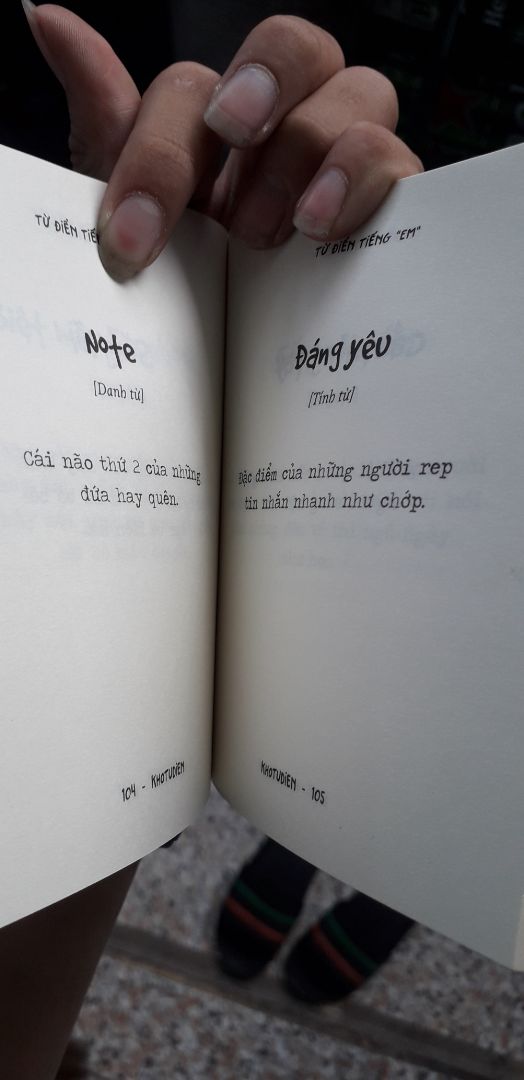 TỪ ĐIỂN
Note
[Danh từ]
Cái não thứ 2 của những
đứa hay quên.
104 - KHOTUDIEN
TỪ ĐIỂN TIẾNG "EM"
Đáng yêu
[Tính từ]
Đặc điểm của những người rep
tin nhắn nhanh như chớp.
KHOTUDIEN - 105